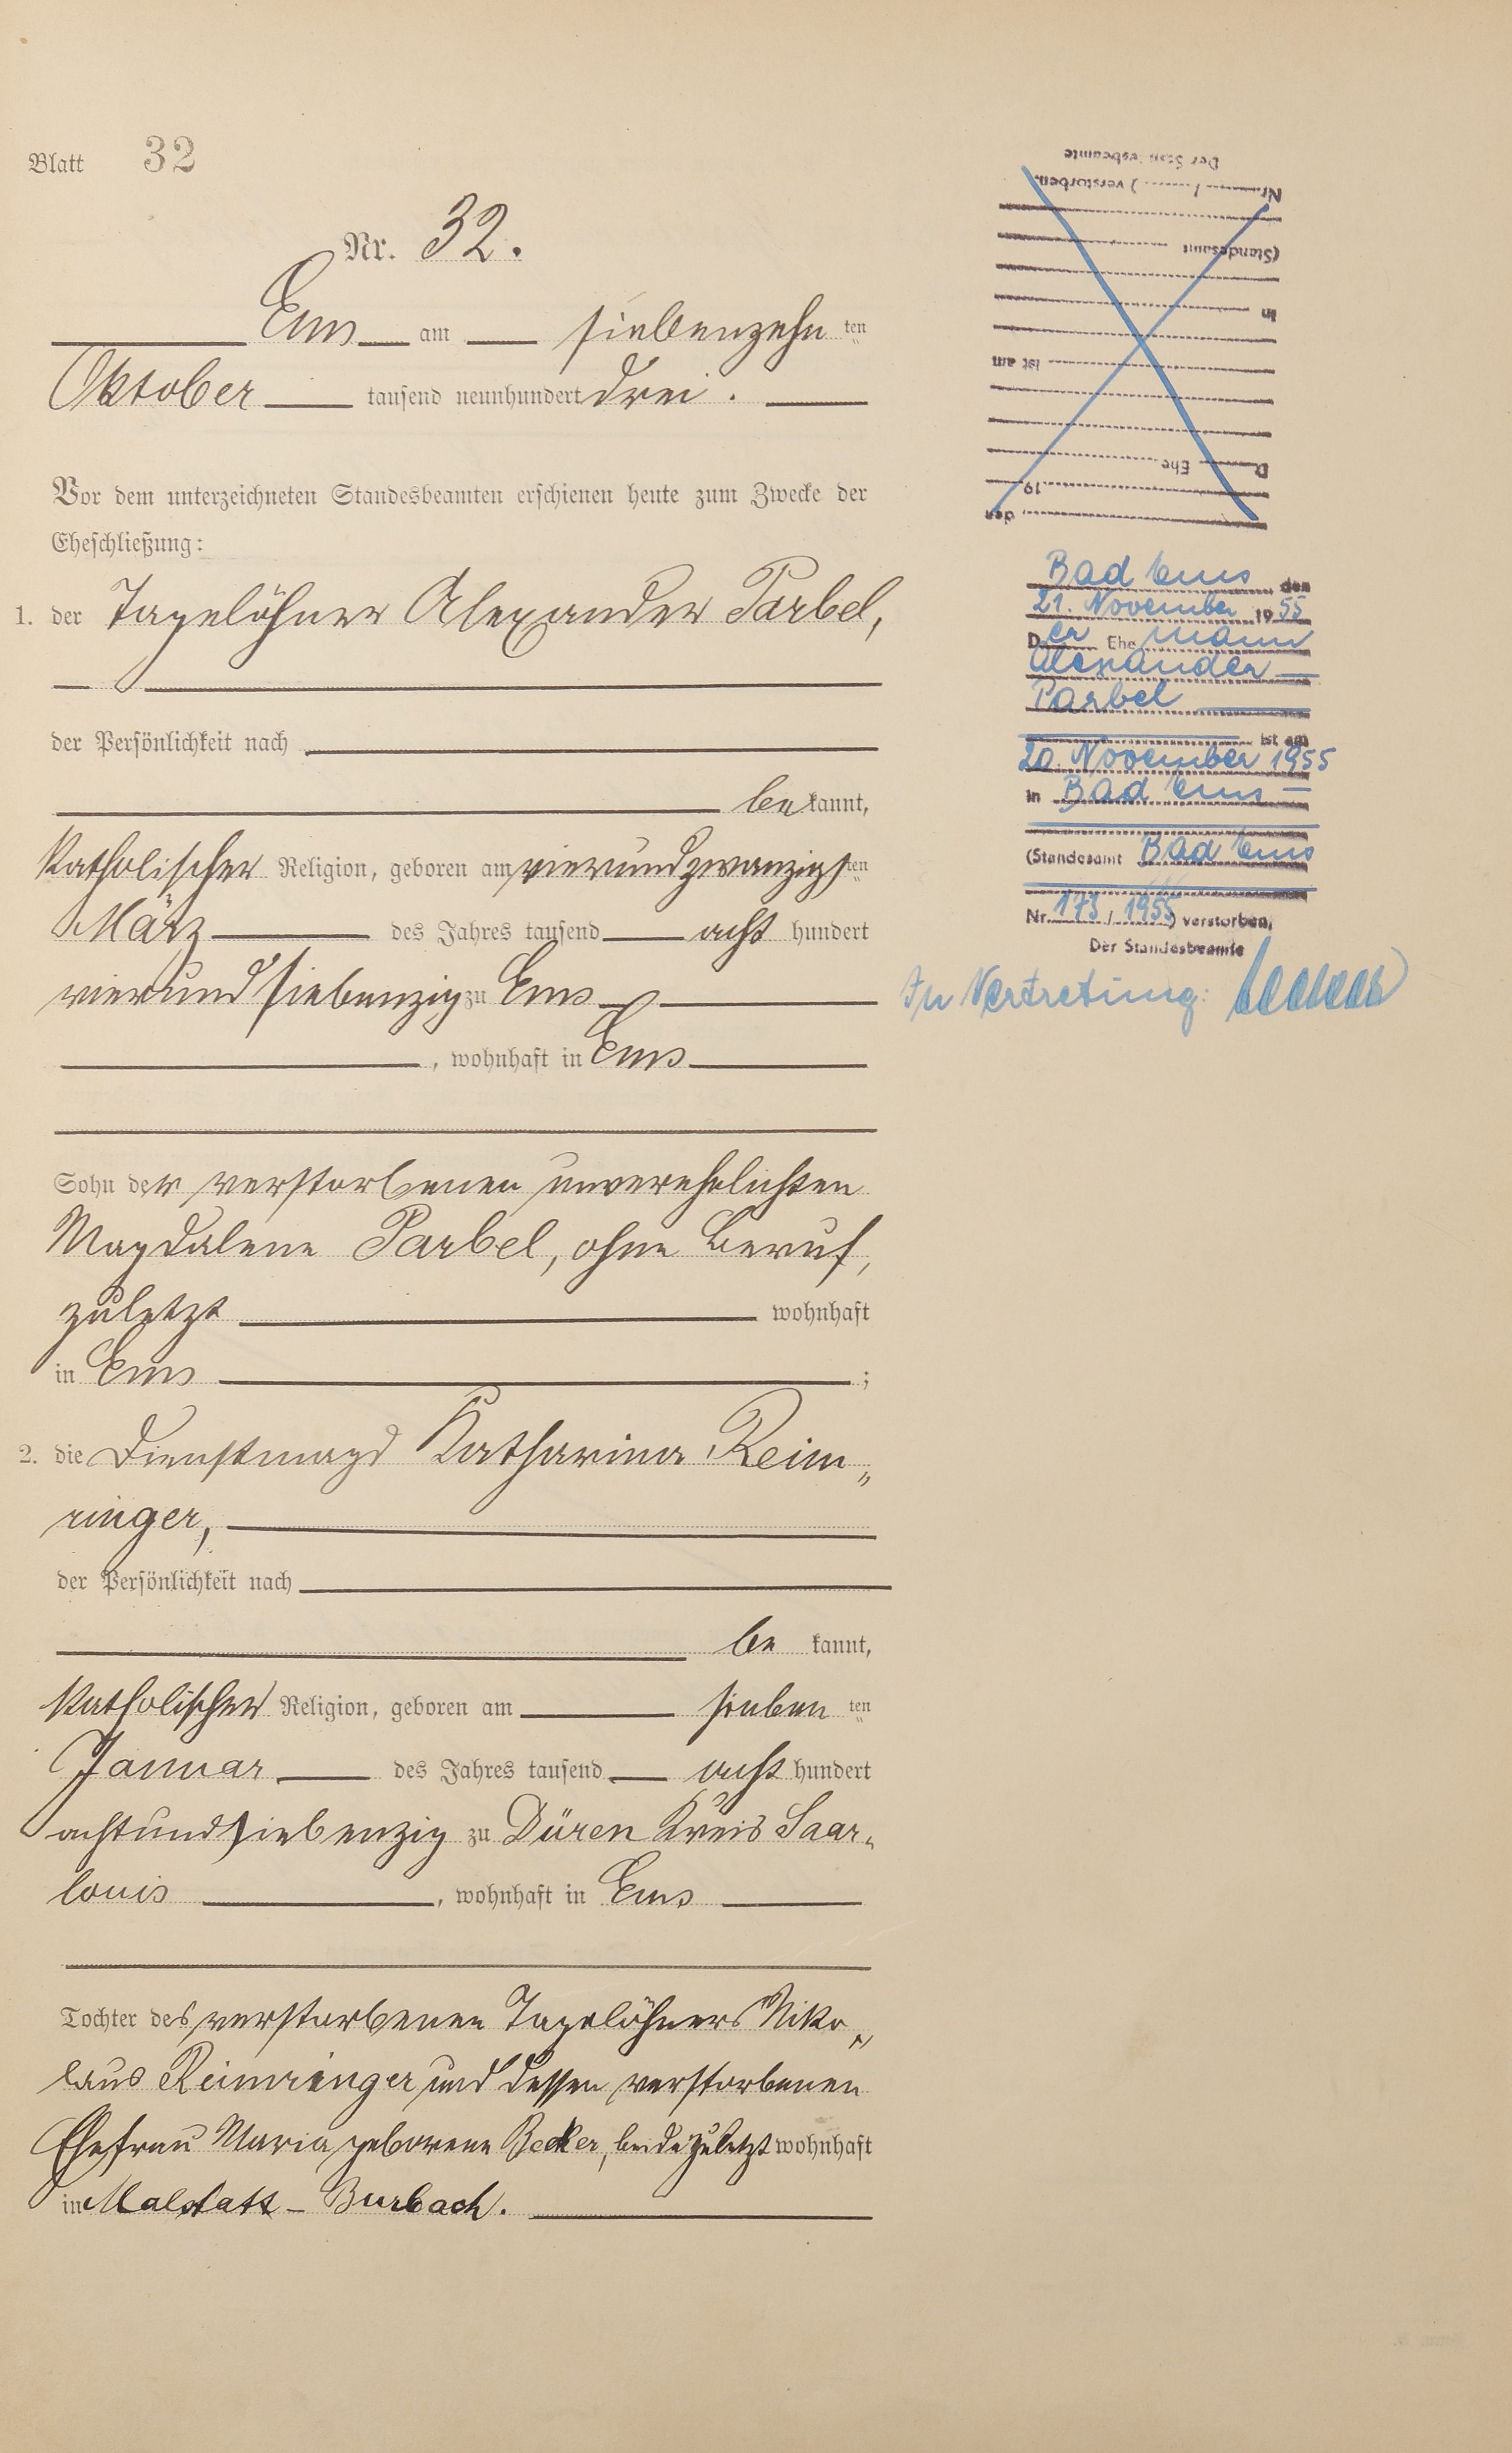 Blatt 32
Nr. 32.
Ems am siebenzehn ten
Oktober tausend neunhundert drei.
Vor dem unterzeichneten Standesbeamten erschienen heute zum Zwecke der
Eheschließung:
1. der Tagelöhner Alexander Parbel,
der Persönlichkeit nach
be kannt,
katholischer Religion, geboren am vierundzwanzigs ten
März des Jahres tausend acht hundert
vierundsiebenzig zu Ems
, wohnhaft in Ems
Sohn der verstorbenen unverehelichten
Magdalena Parbel, ohne Beruf,
zuletzt wohnhaft
in Ems ;
2. die Dienstmagd Katharina Reim„
ringer,
der Persönlichkeit nach
be kannt,
katholischer Religion, geboren am sieben ten
Januar des Jahres tausend acht hundert
achtundsiebenzig zu Düren Kreis Saar„
louis , wohnhaft in Ems
Tochter des verstorbenen Tagelöhners Niko„
laus Reimringer und dessen verstorbenen
Ehefrau Maria geborene Becker, beide zuletzt wohnhaft
in Malstatt-Burbach.
Der Standesbeamte
Nr. / ) verstorben.
(Standesamt
in
ist am
D Ehe
19
, den
Bad Ems, den
21. November 1955
Der Ehemann
Alexander
Parbel
ist am
20. November 1955
in Bad Ems
(Standesamt Bad Ems
Nr. 173 / 1955) verstorben.
Der Standesbeamte
In Vertretung: